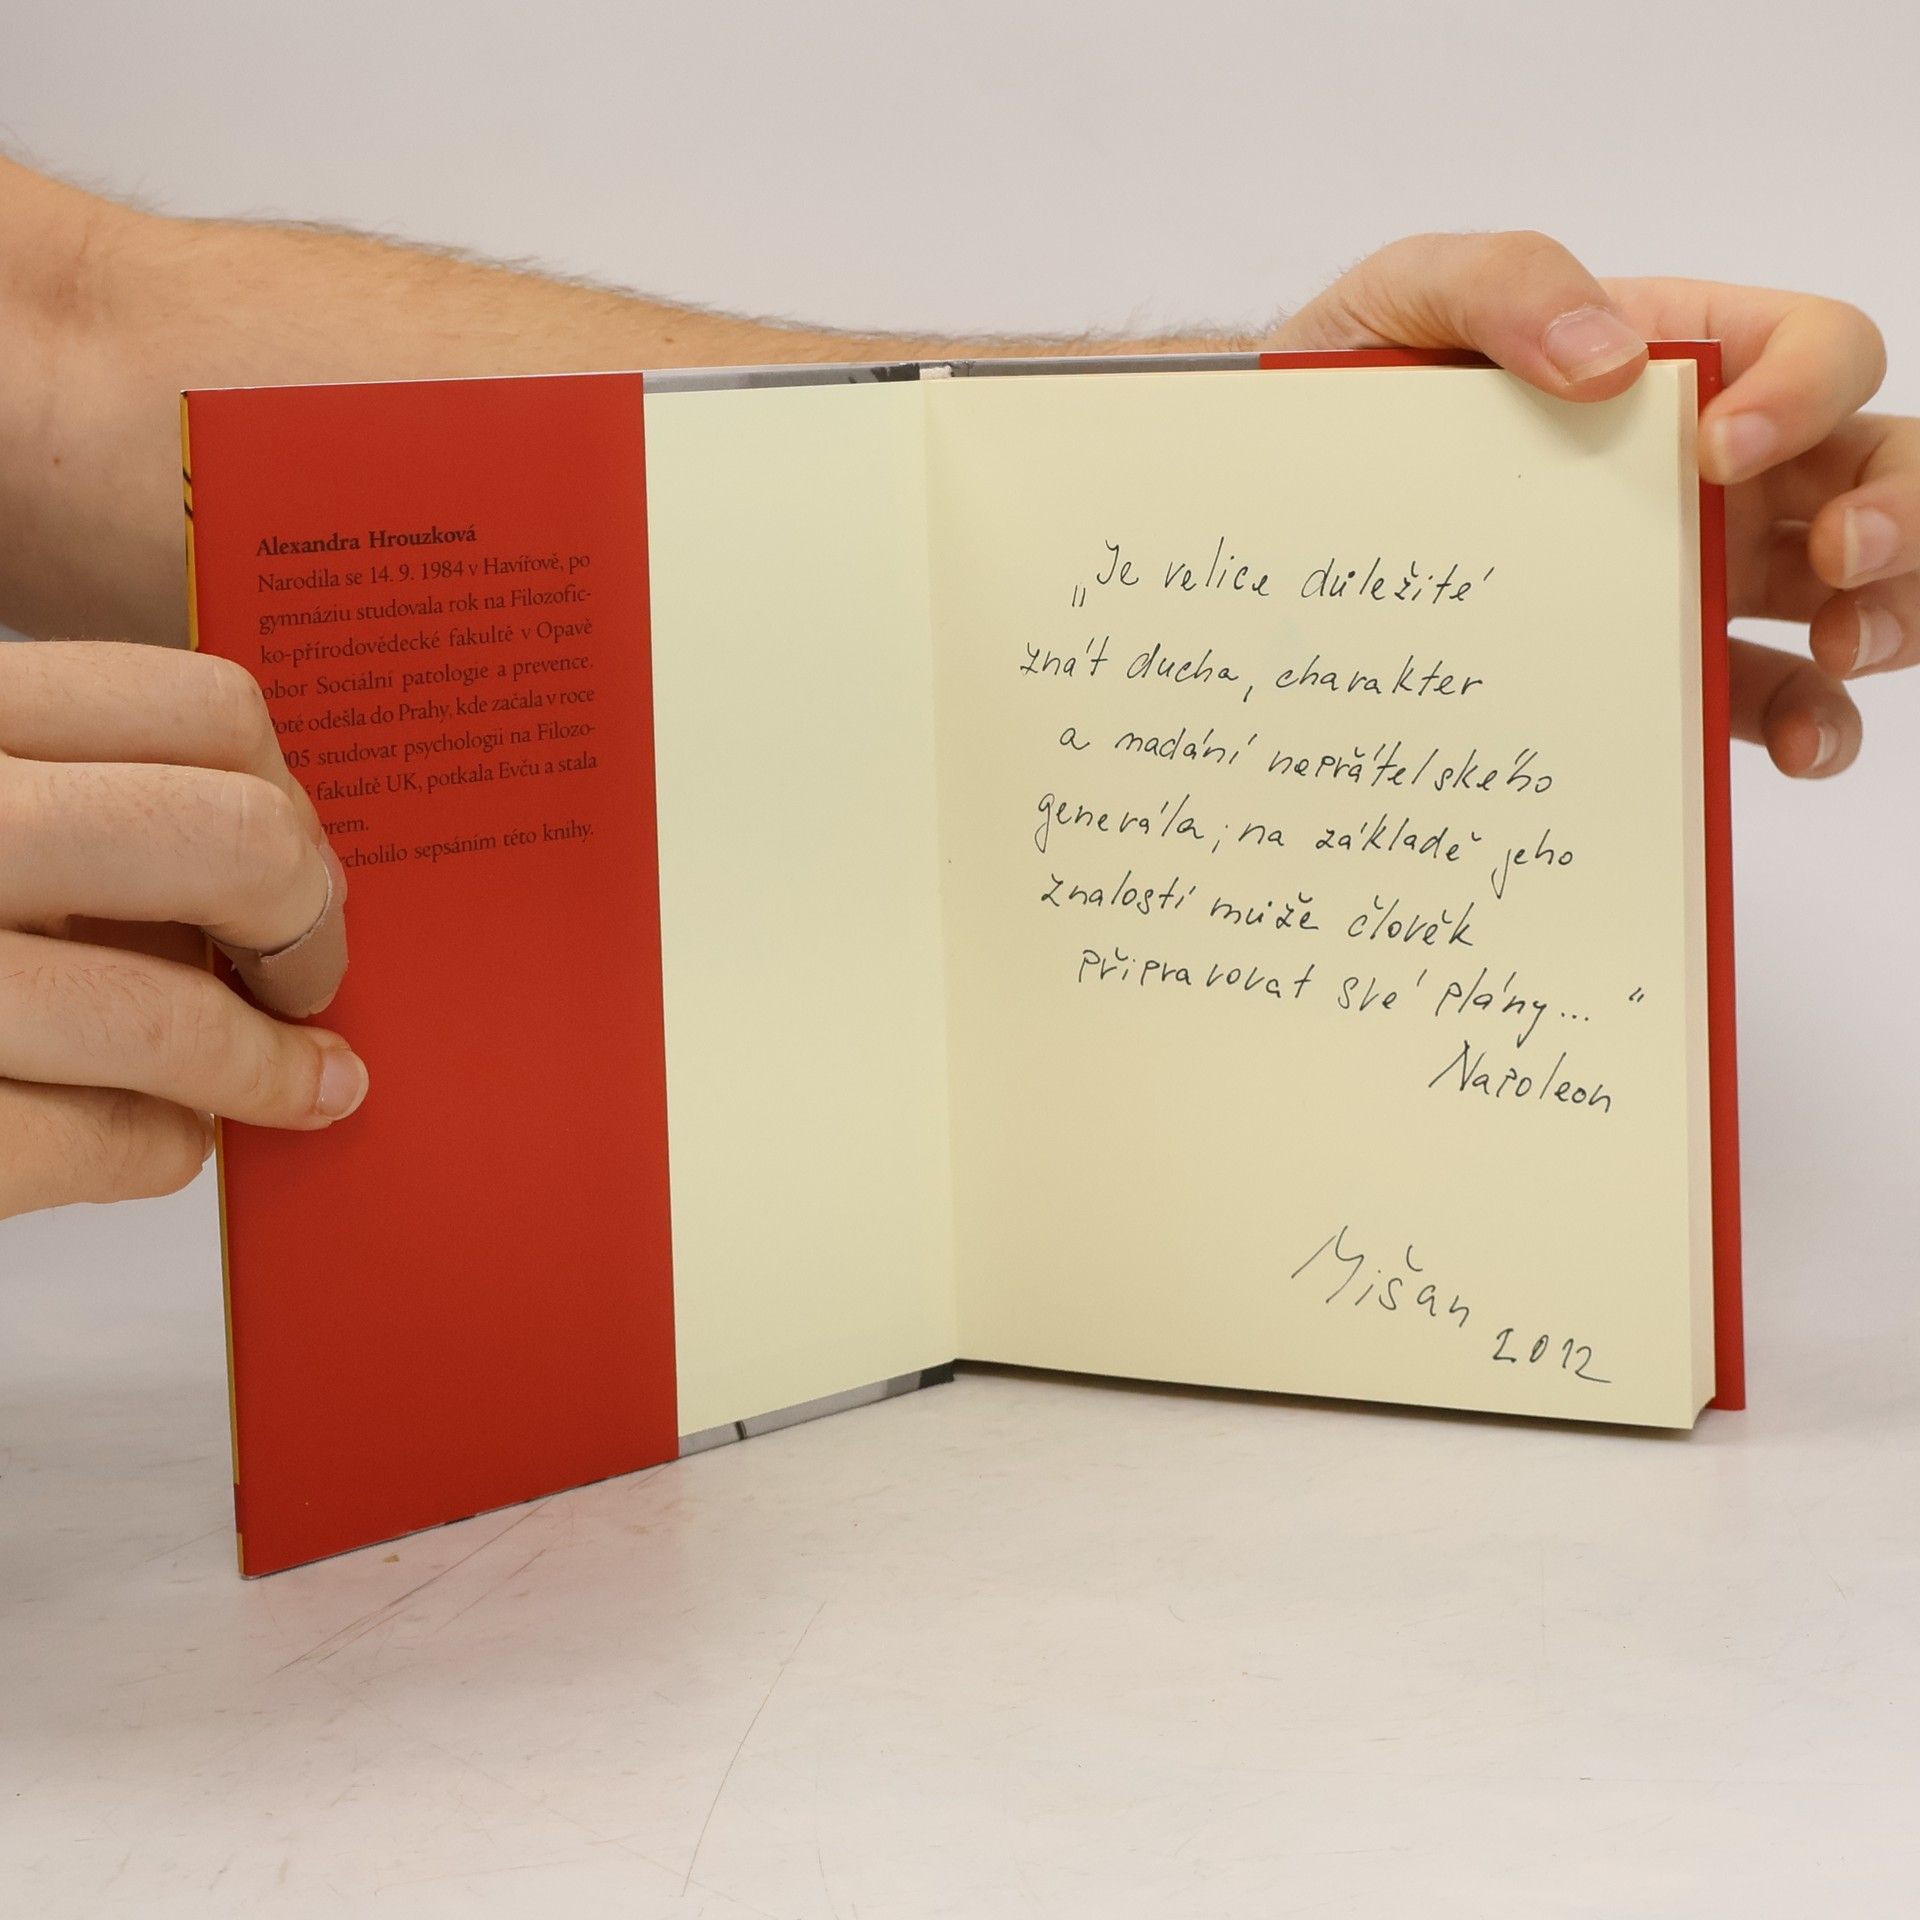 Alexandra Hrouzková
Narodila se 14. 9. 1984 v Havířově, po
gymnáziu studovala rok na Filozofic-
ko-přírodovědecké fakultě v Opavě
obor Sociální patologie a prevence.
Poté odešla do Prahy, kde začala v roce
05 studovat psychologii na Filozo-
fakultě UK, potkala Evču a stala
orem.
rcholilo sepsáním této knihy.
„Je velice důležité
znát ducha, charakter
a nadání nepřátelského
generála; na základě jeho
znalostí může člověk
připravovat své plány... "
Napoleon
Mišan
2012